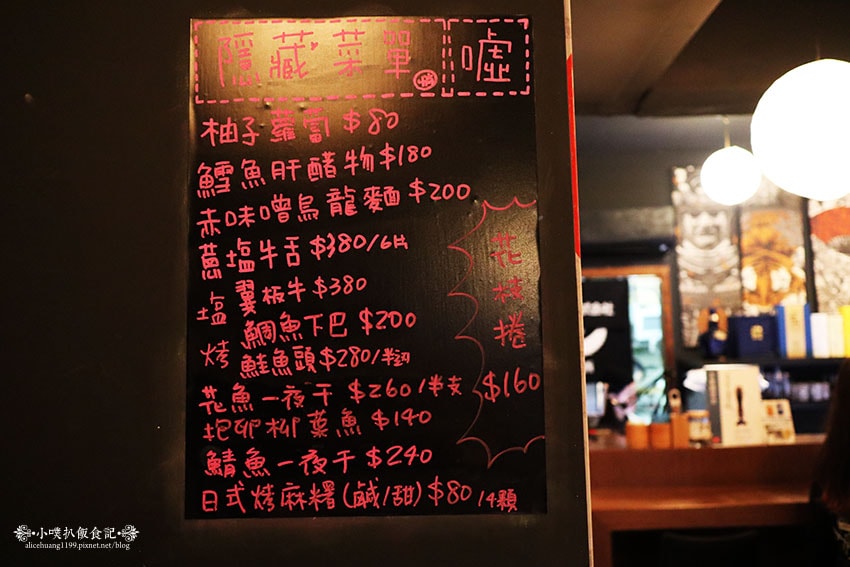 隱藏菜單 噓
柚子蘿蔔 $80
鱈魚肝醋物 $180
赤味噌烏龍麵 $200
蔥塩牛舌 $380/6片
塩烤
翼板牛 $380
鯛魚下巴 $200
鮭魚頭 $280/半羽
花魚一夜干 $260/半支
抱卵柳葉魚 $140
鯖魚一夜干 $240
日式烤麻糬(鹹/甜) $80/4顆
花枝捲
$160
小噗扒飯食記
alicehuang1199.pixnet.net/blog